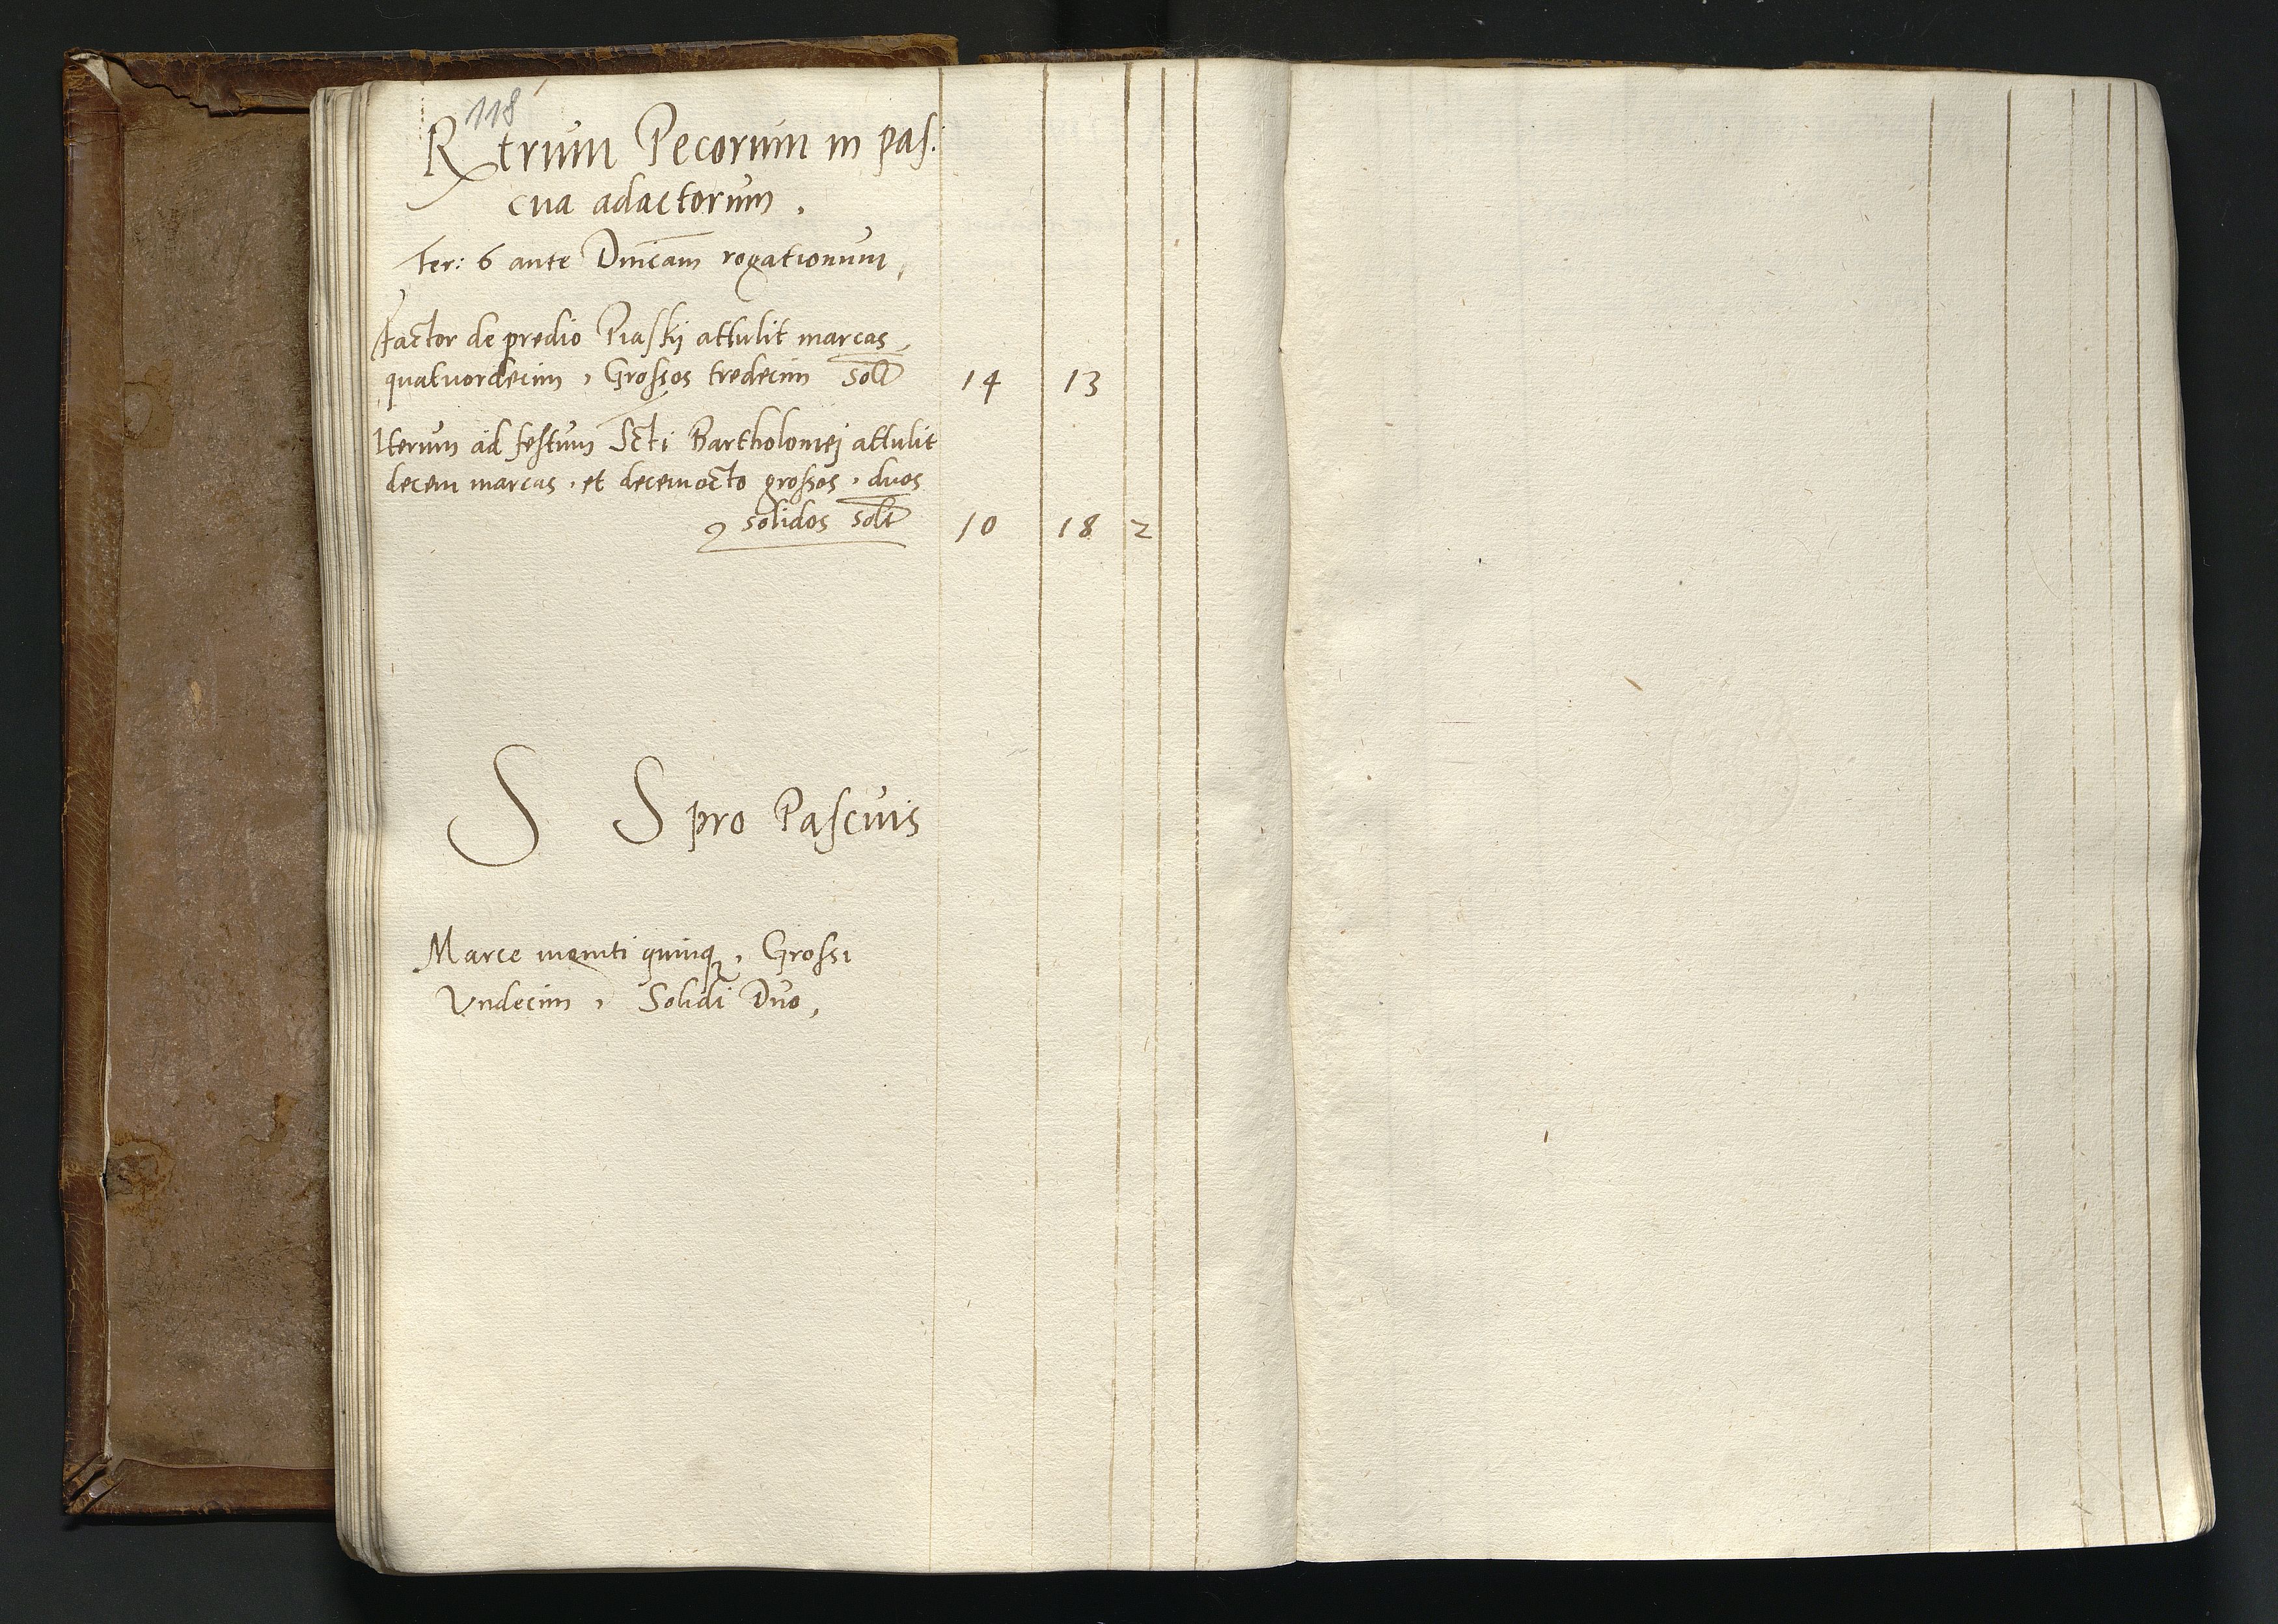 118
Rtrum Pecorum in pas.
cua adactorum,
Fer: 6 ante Dnicam rogationum,
Factor de predio Piaskij attulit marcas,
quatuordecim, Grossos tredecim solt 14 13
Iterum ad festum Scti Bartholomej attulit
decem marcas, et decemocto grossos, duos
2 solidos solt 10 18 2
S S pro Pascuis
Marce viginti quinq, Grossi
Undecim, Solidi Duo,